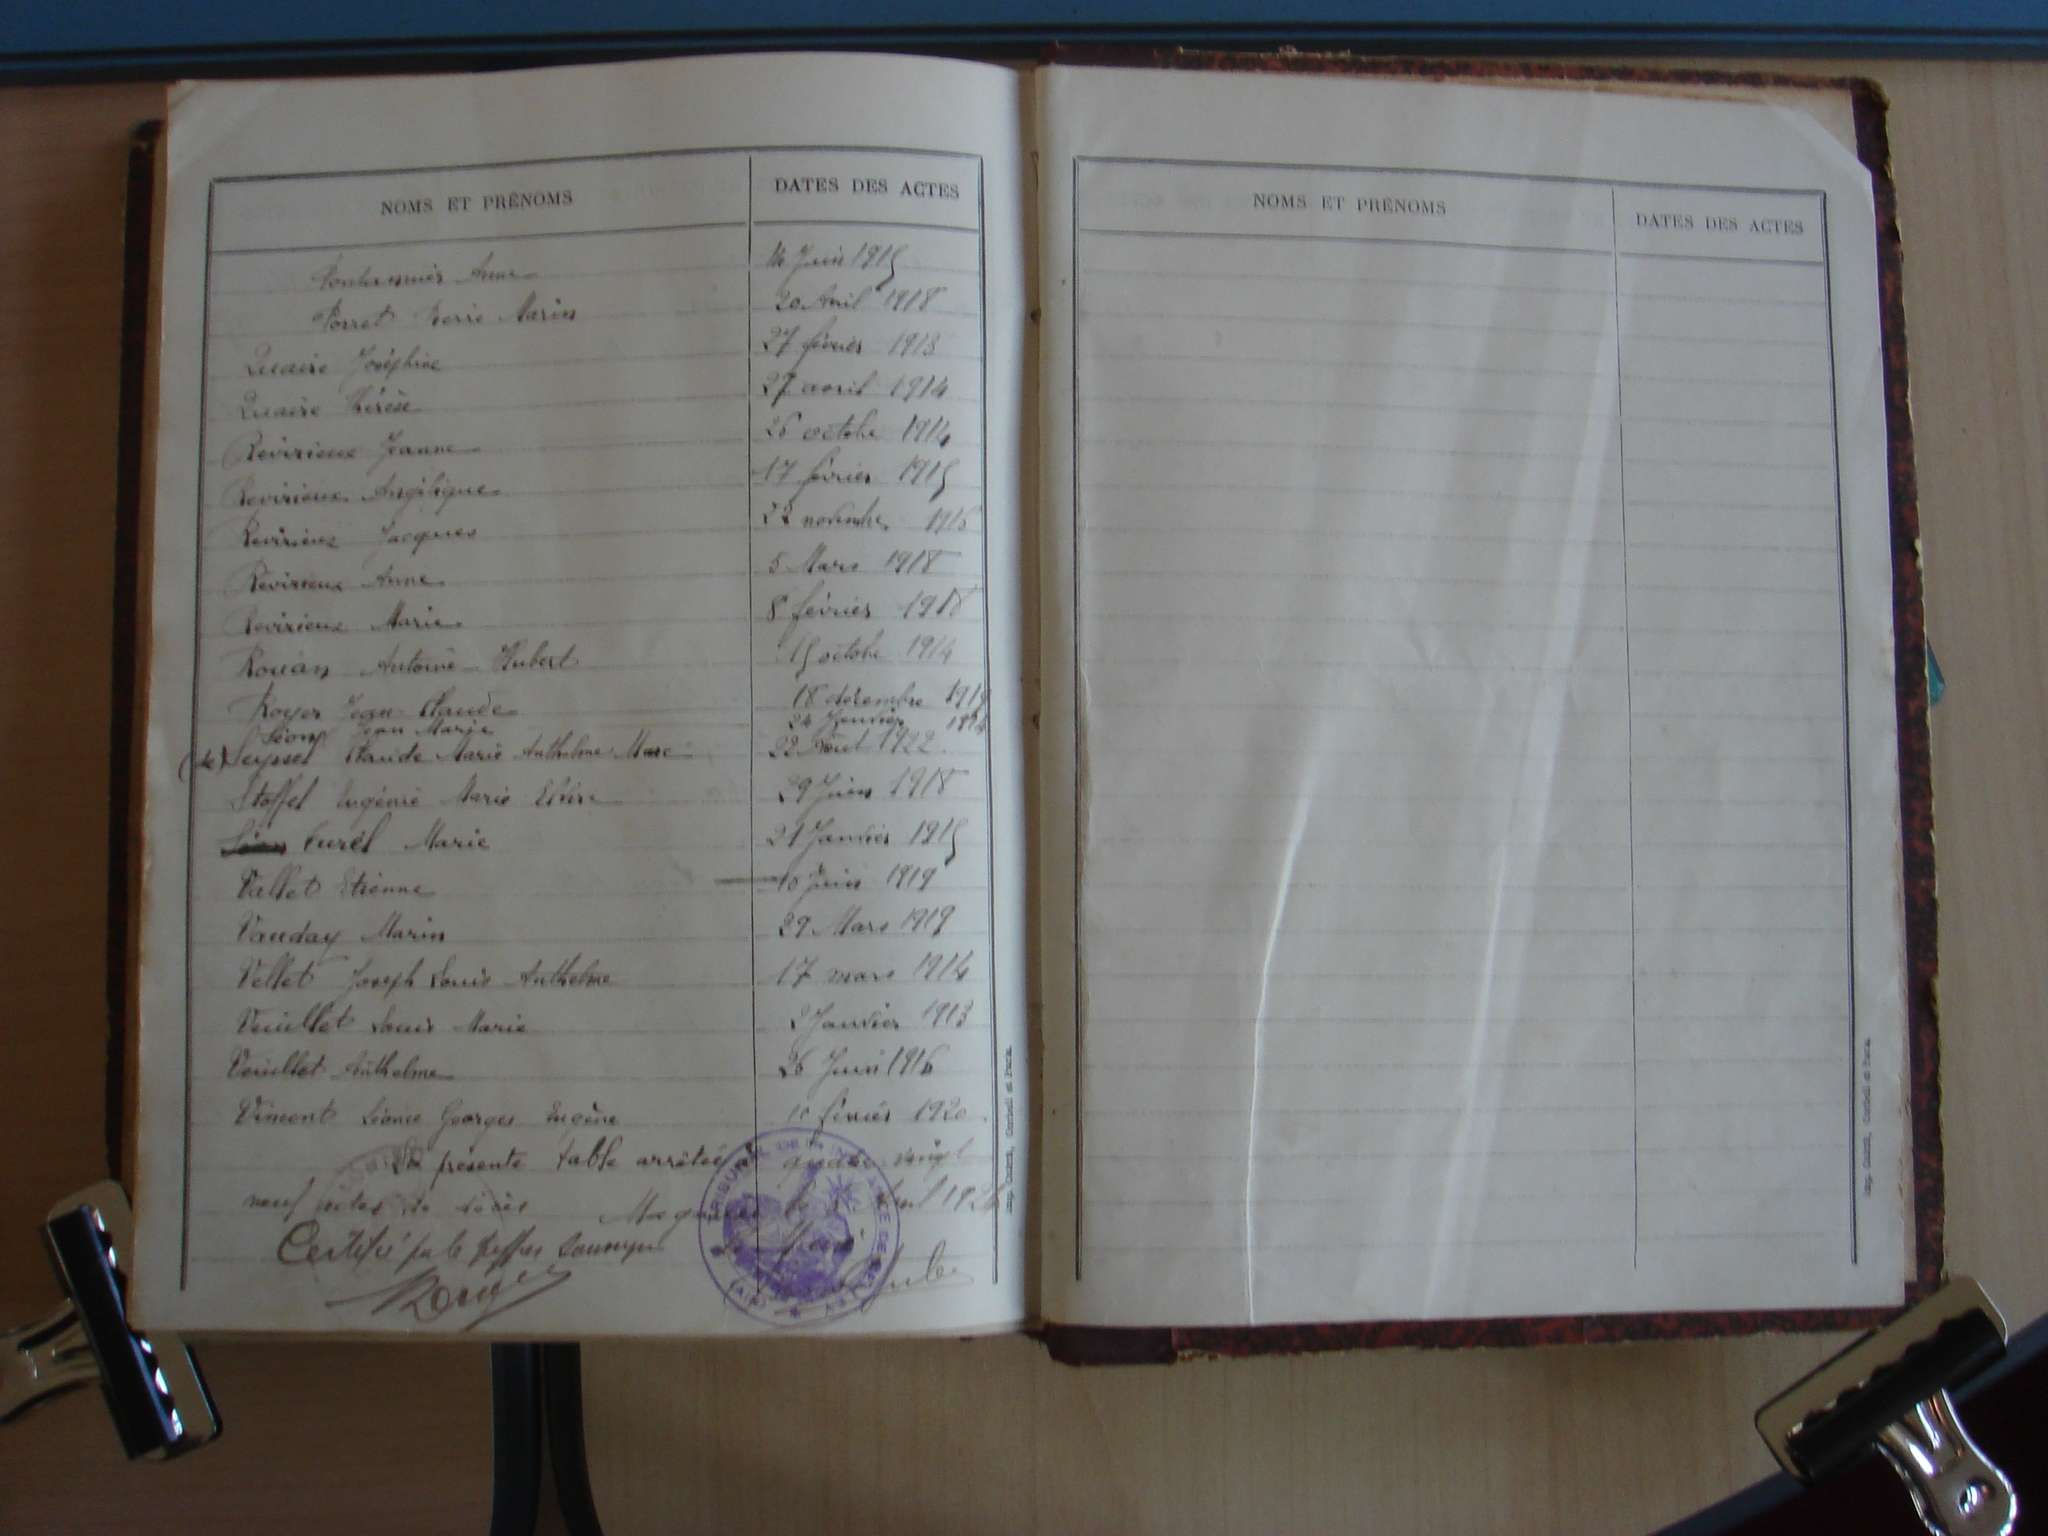 NOMS ET PRÉNOMS DATES DES ACTES
Anne 14 Juin 1915
Porret Pierre Marin 20 Avril 1918
Quaire Joséphine 27 février 1913
Quaire Thérèse 27 avril 1914
Revirieux Jeanne 26 octobre 1914
Revirieux Angélique 17 février 1915
Revirieux Jacques 22 novembre 1916
Revirieux Anne 5 Mars 1918
Revirieux Marie 8 février 1918
Antoine Hubert 15 octobre 1914
Royer Jean Claude 18 décembre 1914
Léon Jean Marie 24 Janvier
(de) Seyssel Claude Marie Anthelme Marc 22 Août 1922
Stoffel Eugénie Marie 29 Juin 1918
Curél Marie 21 Janvier 1915
Vallet Etienne 10 Juin 1919
Vauday Marin 29 Mars 1919
Vellet Joseph Louis Anthelme 17 mars 1914
Veuillet Louis Marie 2 Janvier 1913
Veuillet Anthelme 26 Juin 1916
Vincent Léonce Georges Eugène 10 février 1920
La présente table arrêtée à quatre vingt
neuf actes de décès
Le Maire
Certifié par le Greffier soussigné
TRIBUNAL DE 1ère INSTANCE DE BELLEY (AIN)
Imp. Corbeil et Paris.
NOMS ET PRÉNOMS DATES DES ACTES
Imp. Corbeil et Paris.